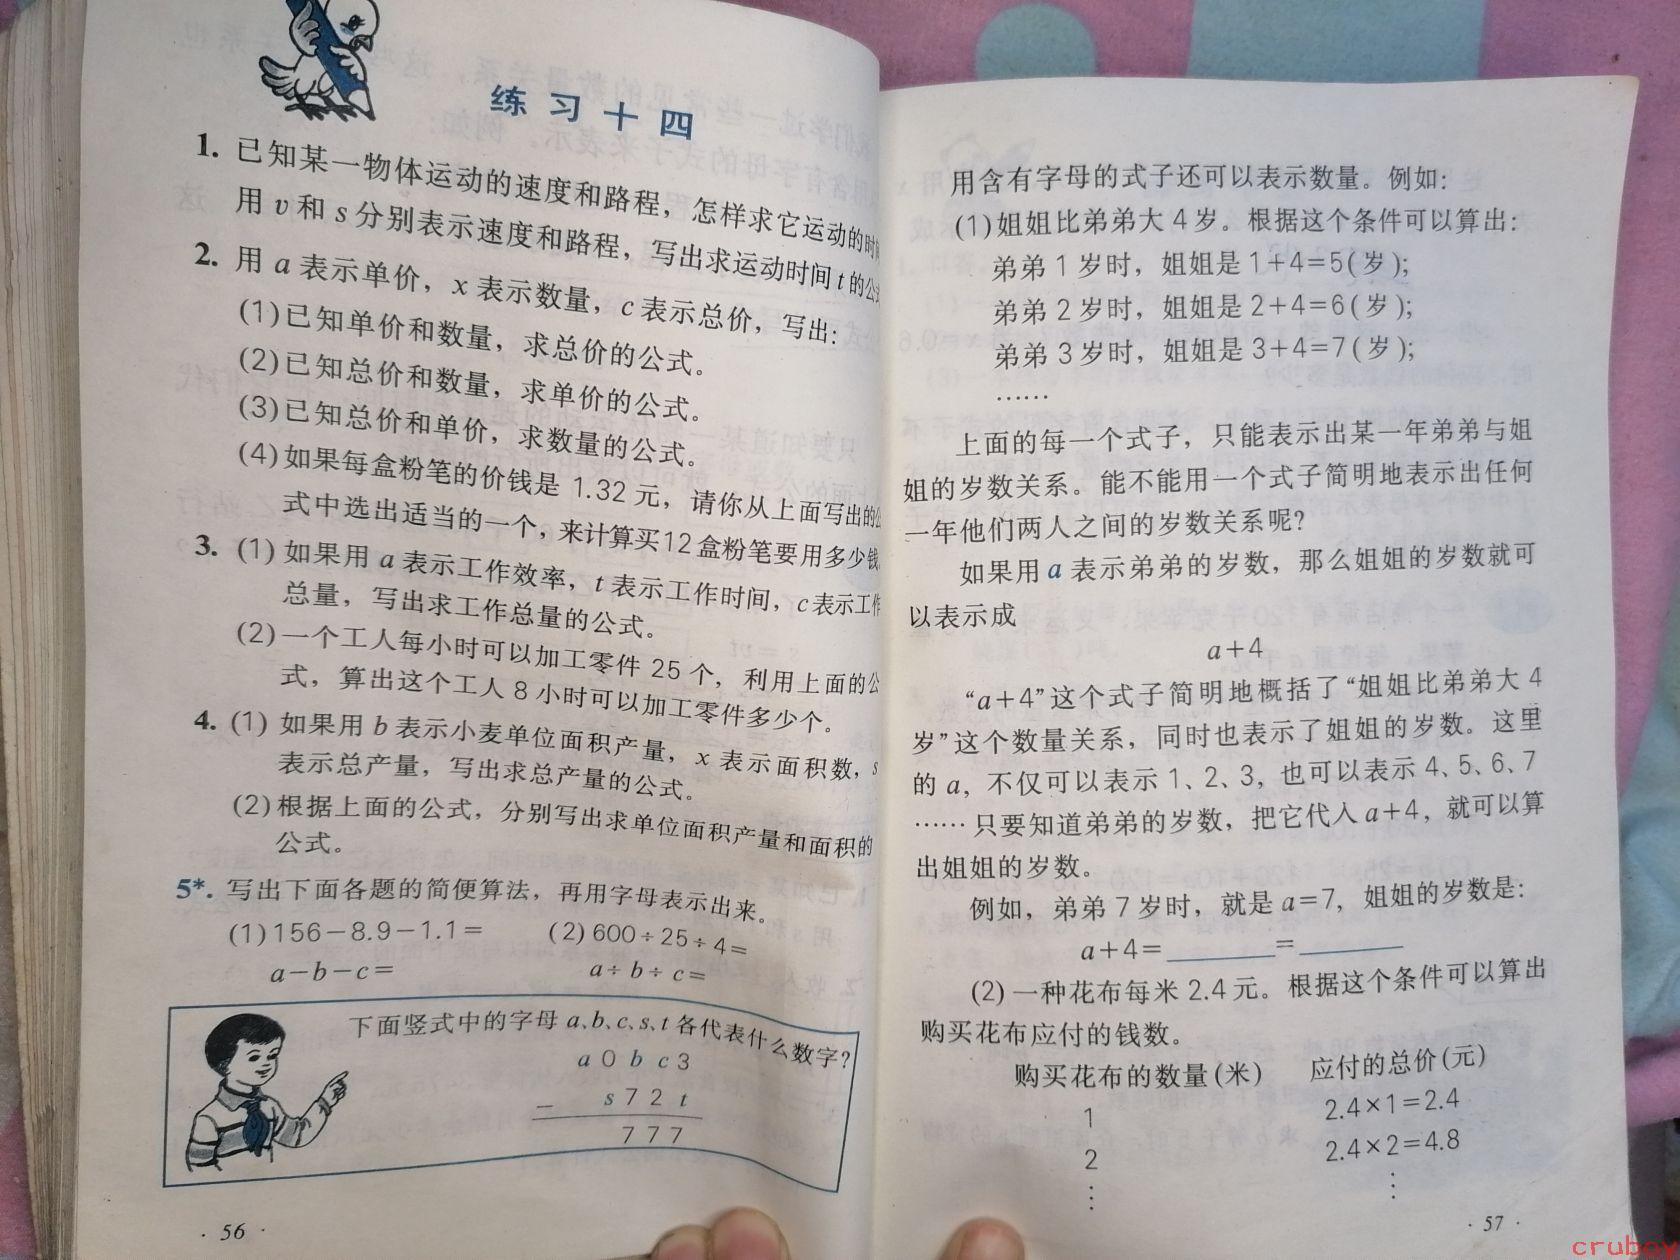 练习十四
1. 已知某一物体运动的速度和路程，怎样求它运动的时
用 v 和 s 分别表示速度和路程，写出求运动时间 t 的公
2. 用 a 表示单价，x 表示数量，c 表示总价，写出：
(1)已知单价和数量，求总价的公式。
(2)已知总价和数量，求单价的公式。
(3)已知总价和单价，求数量的公式。
(4)如果每盒粉笔的价钱是 1.32 元，请你从上面写出的公
式中选出适当的一个，来计算买12盒粉笔要用多少钱
3. (1) 如果用 a 表示工作效率，t 表示工作时间，c 表示工作
总量，写出求工作总量的公式。
(2)一个工人每小时可以加工零件 25 个，利用上面的公
式，算出这个工人 8 小时可以加工零件多少个。
4. (1) 如果用 b 表示小麦单位面积产量，x 表示面积数，s
表示总产量，写出求总产量的公式。
(2)根据上面的公式，分别写出求单位面积产量和面积的
公式。
5*. 写出下面各题的简便算法，再用字母表示出来。
(1)156－8.9－1.1＝ (2)600÷25÷4＝
a－b－c＝ a÷b÷c＝
下面竖式中的字母 a、b、c、s、t 各代表什么数字？
a 0 b c 3
－ s 7 2 t
7 7 7
· 56 ·
用含有字母的式子还可以表示数量。例如：
(1)姐姐比弟弟大 4 岁。根据这个条件可以算出：
弟弟 1 岁时，姐姐是 1＋4＝5(岁)；
弟弟 2 岁时，姐姐是 2＋4＝6(岁)；
弟弟 3 岁时，姐姐是 3＋4＝7(岁)；
……
上面的每一个式子，只能表示出某一年弟弟与姐
姐的岁数关系。能不能用一个式子简明地表示出任何
一年他们两人之间的岁数关系呢？
如果用 a 表示弟弟的岁数，那么姐姐的岁数就可
以表示成
a＋4
“a＋4”这个式子简明地概括了“姐姐比弟弟大 4
岁”这个数量关系，同时也表示了姐姐的岁数。这里
的 a，不仅可以表示 1、2、3，也可以表示 4、5、6、7
……只要知道弟弟的岁数，把它代入 a＋4，就可以算
出姐姐的岁数。
例如，弟弟 7 岁时，就是 a＝7，姐姐的岁数是：
a＋4＝______＝______
(2) 一种花布每米 2.4 元。根据这个条件可以算出
购买花布应付的钱数。
购买花布的数量(米) 应付的总价(元)
1 2.4×1＝2.4
2 2.4×2＝4.8
⋮ ⋮
· 57 ·